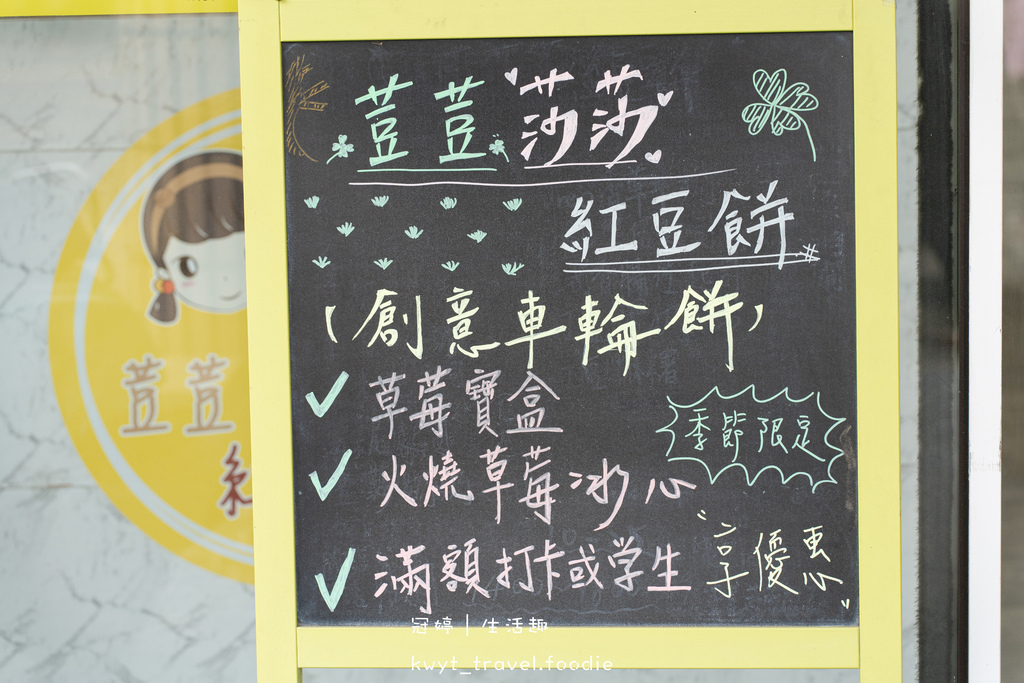 荳荳莎莎
紅豆餅
(創意車輪餅)
草莓寶盒
季節限定
火燒草莓冰心
滿額打卡或学生
"享優惠"
荳荳
冠婷｜生活趣
kwyt_travel.foodie